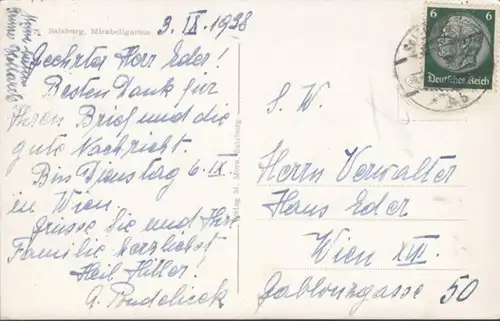 Salzburg, Mirabellgarten
3. IX. 1938
Geehrter Herr Eder!
Besten Dank für
Ihren Brief und die
gute Nachricht.
Bin Dienstag 6. IX
in Wien.
grüsse Sie und Ihre
Familie herzlichst
Heil Hitler!
Verlag M. Salzburg
6 6
Deutsches Reich
S. W.
Herrn Verwalter
Hans Eder
Wien XVI
Gablonzgasse 50